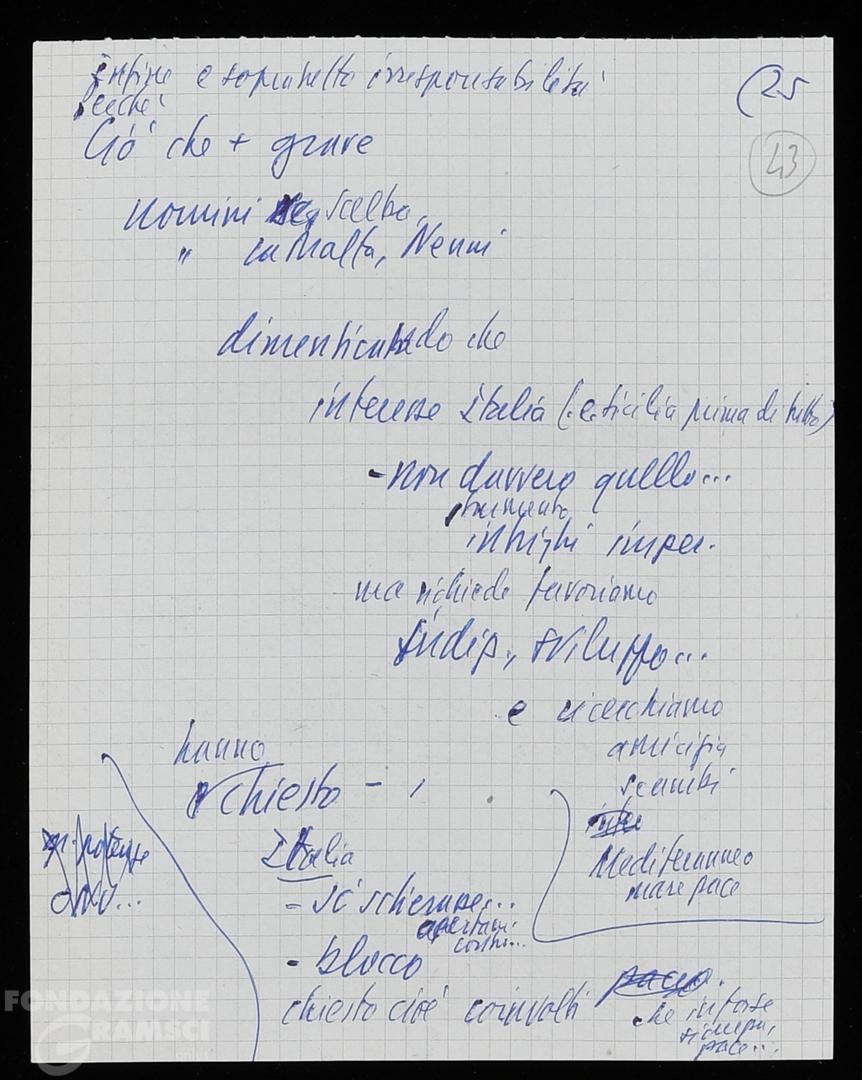 Infine e sopratutto irresponsabilità
(25
perché
43
Ciò che + grave
uomini Scelba,
" La Malfa, Nenni
dimenticando che
interesse Italia (e Sicilia prima di tutto)
- non davvero quello...
strumento
intrighi imper.
ma richiede favoriamo
indip., sviluppo...
e ricerchiamo
amicizia
scambi
Mediterraneo
mare pace
hanno
chiesto -
Italia
- si schierasse...
apertam.
contro...
- blocco
chiesto cioè coinvolti
che in forse
pace...
FONDAZIONE
GRAMSCI